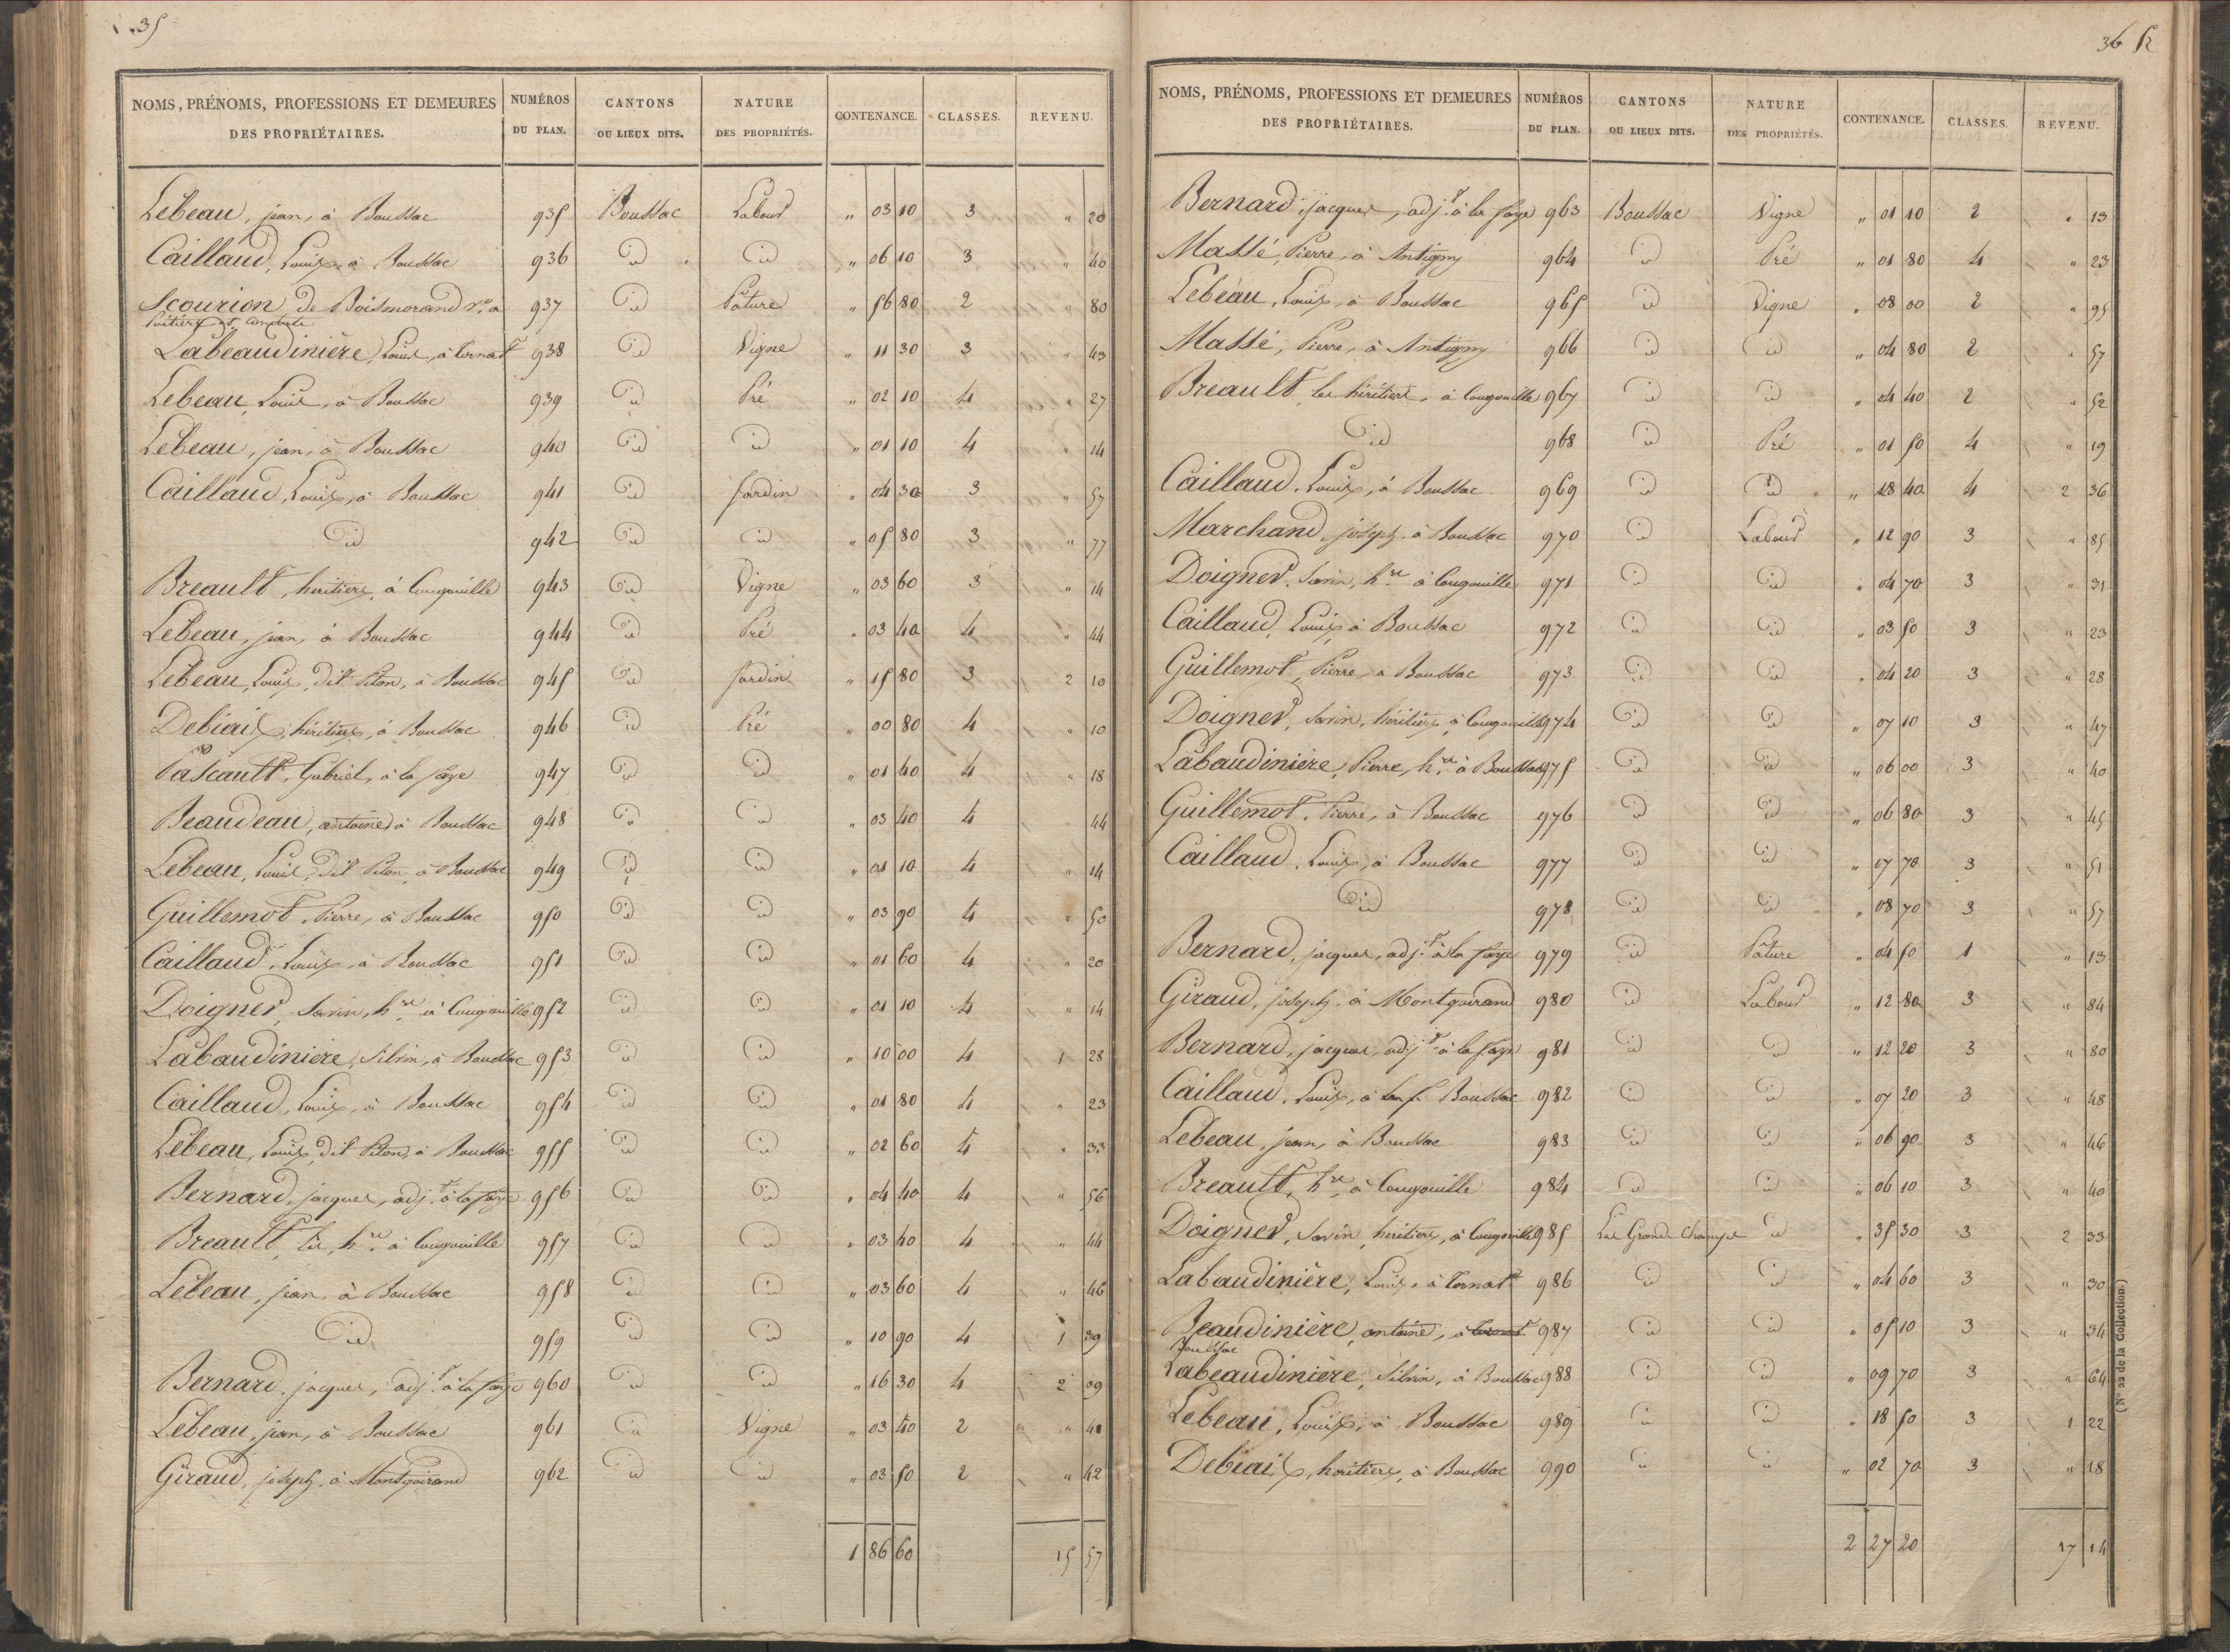 35
NOMS, PRÉNOMS, PROFESSIONS ET DEMEURES DES PROPRIÉTAIRES. NUMÉROS DU PLAN. CANTONS OU LIEUX DITS. NATURE DES PROPRIÉTÉS. CONTENANCE. CLASSES. REVENU.
Lebeau, jean, à Boussac 935 Boussac Labour " 03 10 3 " 20
Caillaud, Louis, à Boussac 936 id id " 06 10 3 " 40
Scourion de Boismorand Ve à 937 id Pâture " 56 80 2 " 80
Poitiers et
Labeaudinière, Louis, à 938 id Vigne " 11 30 3 " 43
Lebeau, Louis, à Boussac 939 id Pré " 02 10 4 " 27
Lebeau, jean, à Boussac 940 id id " 01 10 4 " 14
Caillaud, Louis, à Boussac 941 id Jardin " 04 30 3 " 57
id 942 id id " 05 80 3 " 77
Breault, heritiers, à Cougouille 943 id Vigne " 03 60 3 " 14
Lebeau, jean, à Boussac 944 id Pré " 03 40 4 " 44
Lebeau, Louis, dit Piton, à Boussac 945 id Jardin " 15 80 3 2 10
Debiais, héritiers, à Boussac 946 id Pré " 00 80 4 " 10
Pascault, Gabriel, à la faye 947 id id " 01 40 4 " 18
Beaudeau, antoine à Boussac 948 id id " 03 40 4 " 44
Lebeau, Louis, Dit Piton, à Boussac 949 id id " 01 10 4 " 14
Guillemot, Pierre, à Boussac 950 id id " 03 90 4 " 50
Caillaud, Louis, à Boussac 951 id id " 01 60 4 " 20
Doigner, Savin, hre à Cougouille 952 id id " 01 10 4 " 14
Labaudinière, Silvin, à Boussac 953 id id " 10 00 4 1 28
Caillaud, Louis, à Boussac 954 id id " 01 80 4 " 23
Lebeau, Louis dit Piton, à Boussac 955 id id " 02 60 4 " 33
Bernard, jacques, adjt à la faye 956 id id " 04 40 4 " 56
Breault, hre à Cougouille 957 id id " 03 40 4 " 44
Lebeau, jean, à Boussac 958 id id " 03 60 4 " 46
id 959 id id " 10 90 4 1 39
Bernard, jacques, adjt à la faye 960 id id " 16 30 4 2 09
Lebeau, jean, à Boussac 961 id Vigne " 03 40 2 " 41
Giraud, joseph, à Montgoirand 962 id id " 03 50 2 " 42
1 86 60 15 57
36
NOMS, PRÉNOMS, PROFESSIONS ET DEMEURES DES PROPRIÉTAIRES. NUMÉROS DU PLAN. CANTONS OU LIEUX DITS. NATURE DES PROPRIÉTÉS. CONTENANCE. CLASSES. REVENU.
Bernard, jacques, adjt à la faye 963 Boussac Vigne " 01 10 2 " 13
Massé, Pierre, à Antigny 964 id Pré " 01 80 4 " 23
Lebeau, Louis, à Boussac 965 id Vigne " 08 00 2 " 95
Massé, Pierre, à Antigny 966 id id " 04 80 2 " 57
Breault, les héritiers, à Cougouille 967 id id " 04 40 2 " 52
id 968 id Pré " 01 50 4 " 19
Caillaud, Louis, à Boussac 969 id id " 18 40 4 2 36
Marchand, joseph, à Boussac 970 id Labour " 12 90 3 " 85
Doigner, Savin, hre à Cougouille 971 id id " 04 70 3 " 31
Caillaud, Louis, à Boussac 972 id id " 03 50 3 " 23
Guillemot, Pierre, à Boussac 973 id id " 04 20 3 " 28
Doigner, Savin, héritiers, à Cougouille 974 id id " 07 10 3 " 47
Labaudinière, Pierre, hre à Boussac 975 id id " 06 00 3 " 40
Guillemot, Pierre, à Boussac 976 id id " 06 80 3 " 45
Caillaud, Louis, à Boussac 977 id id " 07 70 3 " 51
id 978 id id " 08 70 3 " 57
Bernard, jacques, adjt à la faye 979 id Pâture " 04 50 1 " 13
Giraud, joseph, à Montgoirand 980 id Labour " 12 80 3 " 84
Bernard, jacques, adjt à la faye 981 id id " 12 20 3 " 80
Caillaud, Louis, à Boussac 982 id id " 07 20 3 " 48
Lebeau, jean, à Boussac 983 id id " 06 90 3 " 46
Breault, hre à Cougouille 984 id id " 06 10 3 " 40
Doigner, Savin, heritiers, à Cougouille 985 Les Grands Champs id " 35 30 3 2 33
Labaudinière, Louis, à 986 id id " 04 60 3 " 30
Beaudinière, antoine, à 987 id id " 05 10 3 " 34
Boussac
Labeaudinière, Silvin, à Boussac 988 id id " 09 70 3 " 64
Lebeau, Louis, à Boussac 989 id id " 18 50 3 1 22
Debiais, heritiers, à Boussac 990 id id " 02 70 3 " 18
2 27 20 17 14
(N° 22 de la Collection)